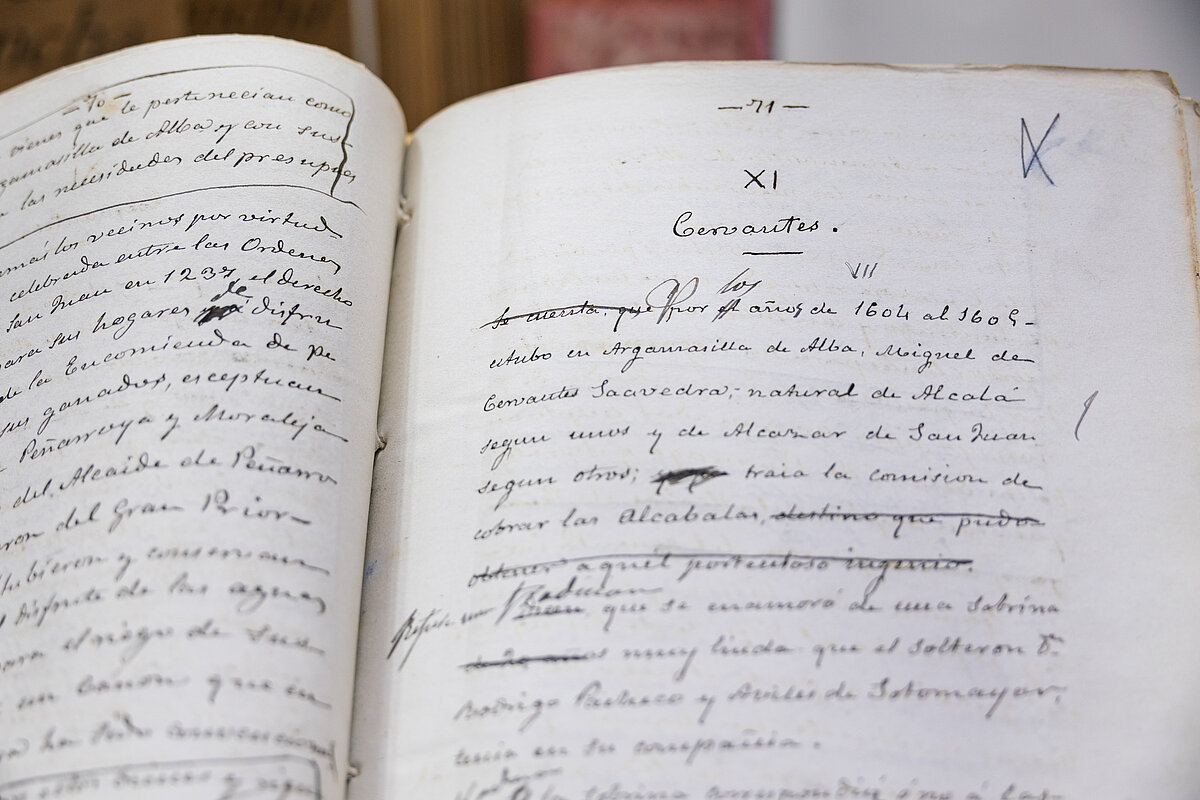 — 70 —
vienes que le pertenecian como
gamasilla de Alba y con sus
a las necesidades del presupues
más los vecinos por virtud
celebrada entre las Ordenes
San Juan en 1237, el derecho
de
para sus hogares disfru
de la Encomienda de pe
sus ganados, esceptuan
Peñarroya y Moraleja
del Alcaide de Peñarro
del Gran Prior
tubieron y conservan
disfrute de las aguas
para el riego de sus
un canon que en
— 71 —
XI
Cervantes.
VII
los
Se cuenta, que Por el años de 1604 al 1605
estubo en Argamasilla de Alba, Miguel de
Cervantes Saavedra; natural de Alcalá
segun unos y de Alcazar de San Juan
segun otros; traia la comision de
cobrar las Alcabalas, destino que pudo
obtener aquel portentoso ingenio.
que se enamoró de una sobrina
de 20 años muy linda que el solteron D.
Rodrigo Pacheco y Avilés de Sotomayor,
tenia en su compañia.
la sobrina